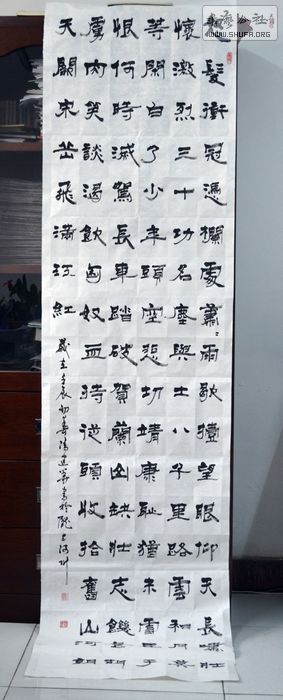 书法公社
WWW.SHUFA.ORG
髮衝冠憑欄處蕭〃雨歇擡望眼仰天長嘯壯
懷激烈三十功名塵與土八千里路雲和月莫
等閑白了少年頭空悲切靖康恥猶未雪臣子
恨何時滅駕長車踏破賀蘭山缺壯志饑餐胡
虜肉笑談渴飲匈奴血待從頭收拾舊山河朝
天闕宋岳飛滿江紅
歲在壬辰初書於隴上河州